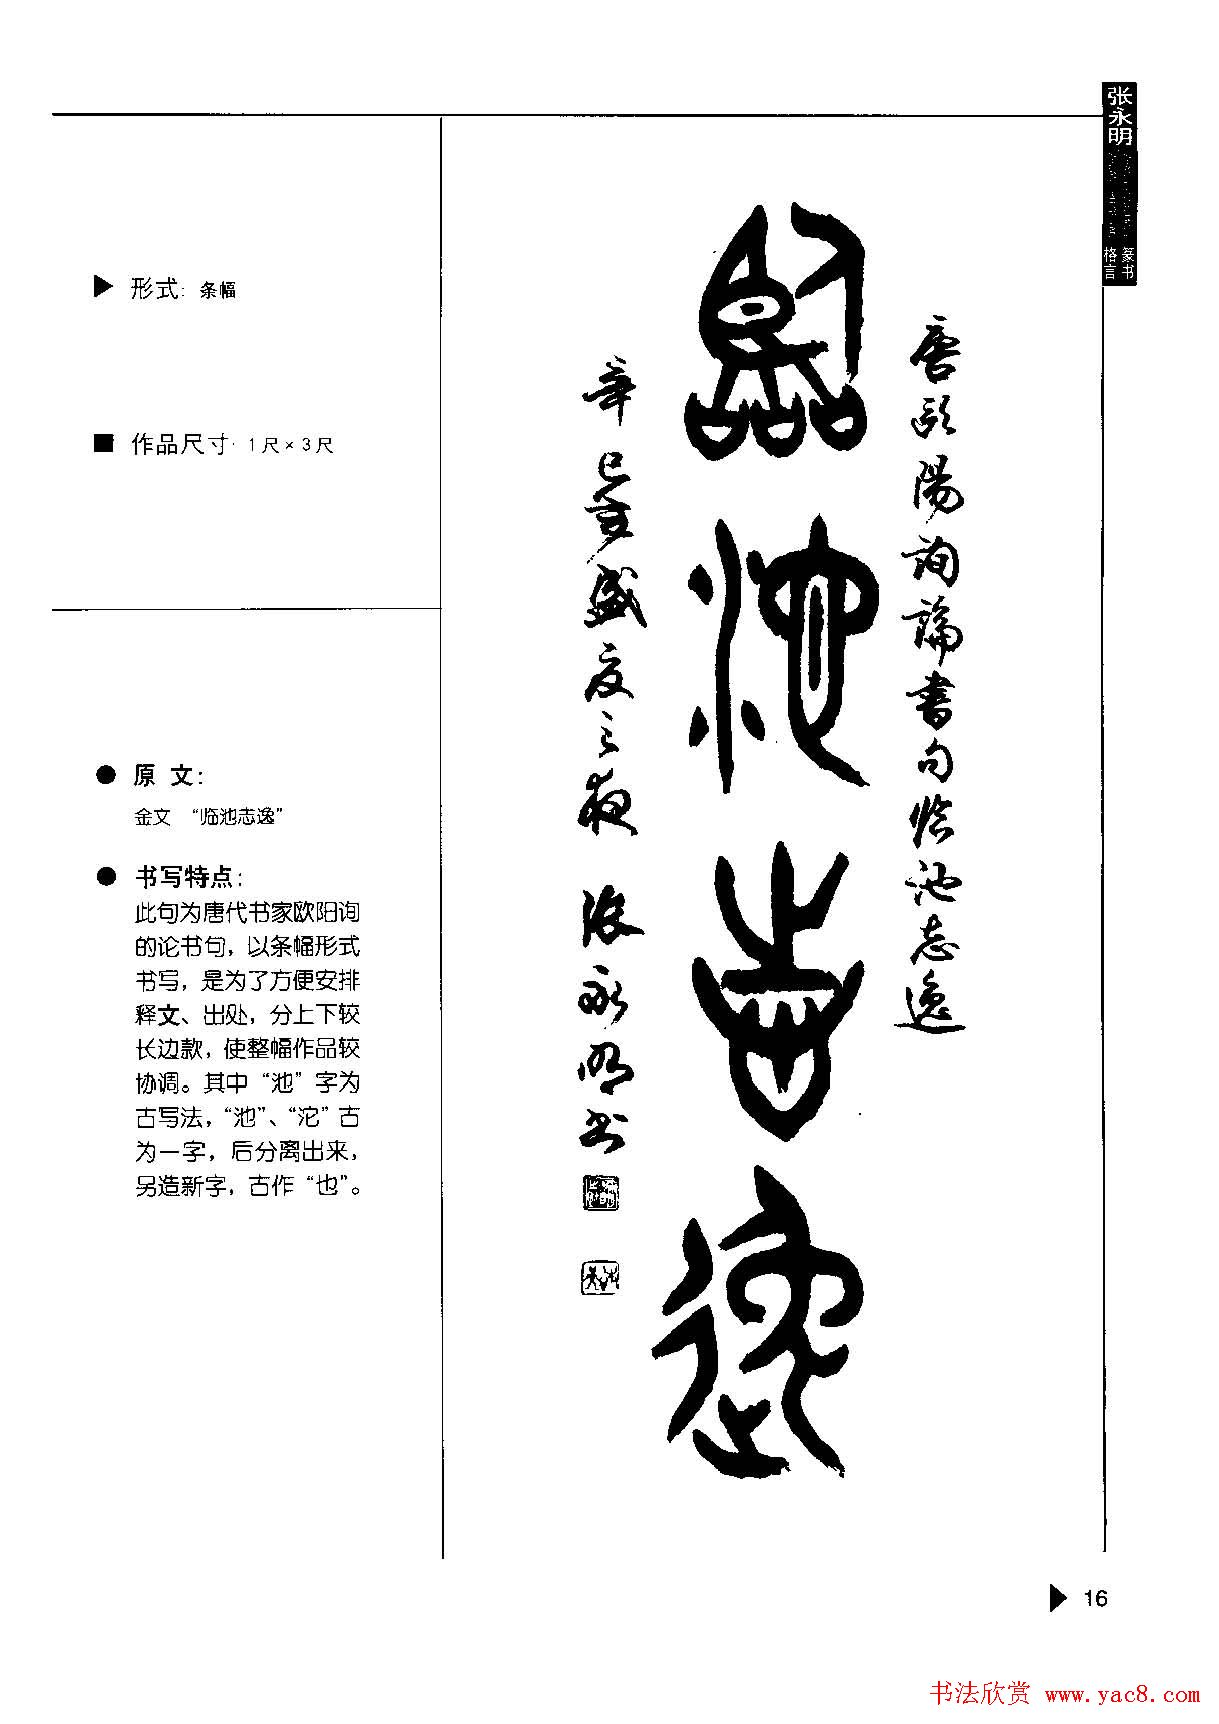 张永明
篆书
格言
形式: 条幅
作品尺寸: 1尺×3尺
原 文:
金文 “临池志逸”
书写特点:
此句为唐代书家欧阳询
的论书句，以条幅形式
书写，是为了方便安排
释文、出处，分上下较
长边款，使整幅作品较
协调。其中“池”字为
古写法，“池”、“沱”古
为一字，后分离出来，
另造新字，古作“也”。
唐欧陽詢論書句临池志逸
临池志逸
辛巳夏盛夏之夜 张永明书
16
书法欣赏 www.yac8.com